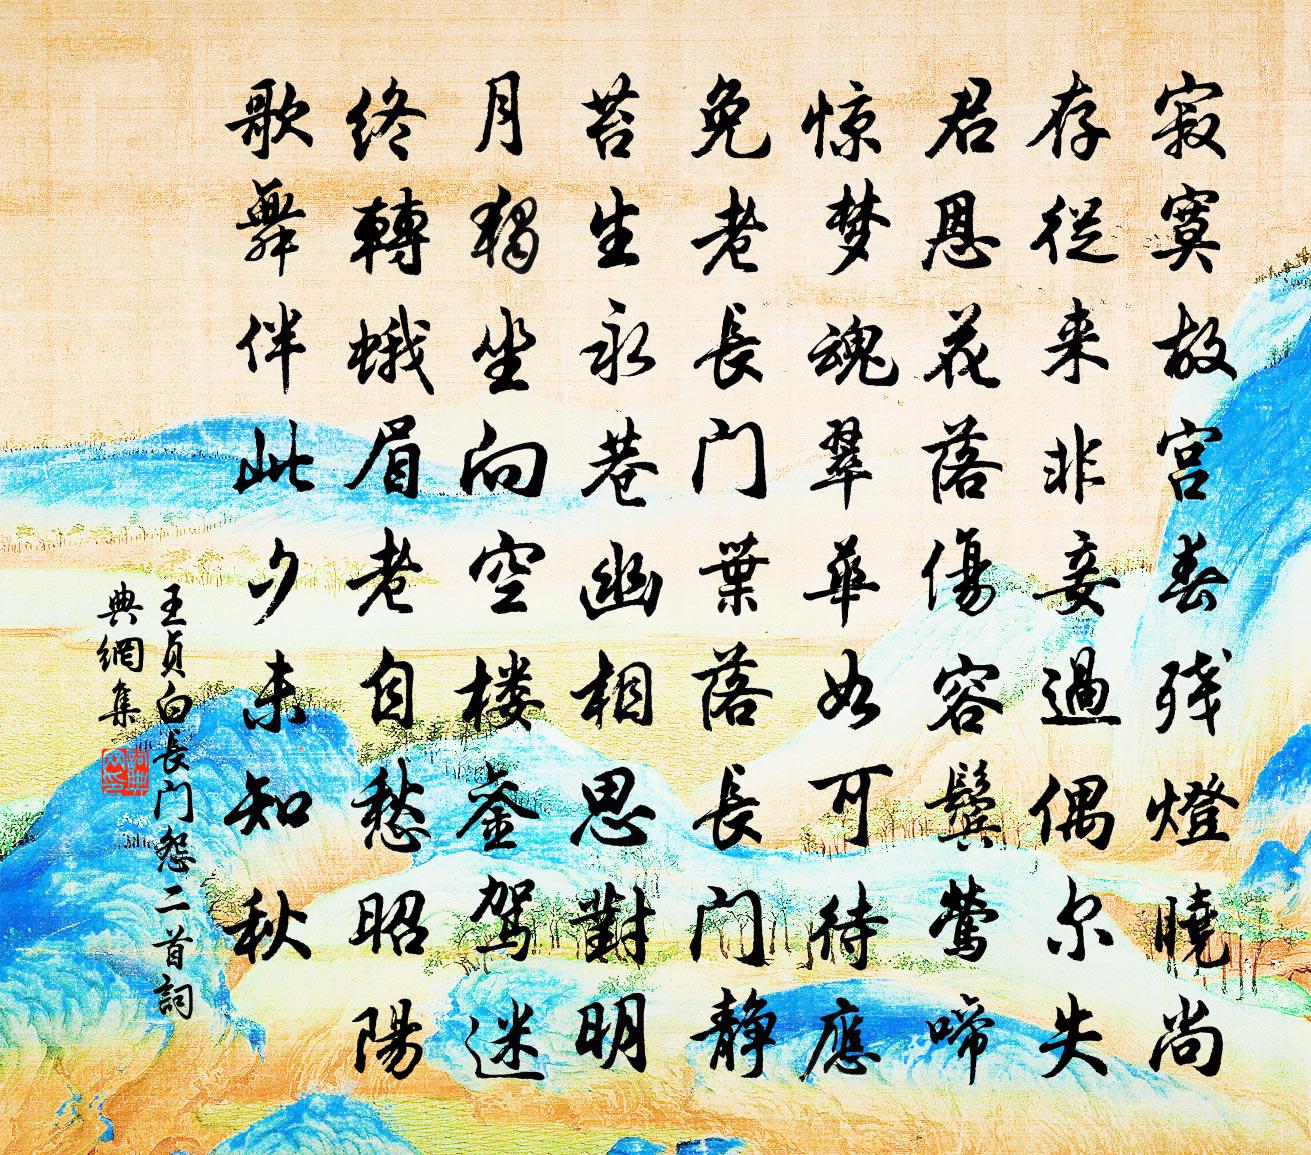 寂寞故宫春残燈曉尚
存従来非妾過偶尔失
君恩花落傷容鬓莺啼
惊梦魂翠華如可待應
免老長门葉落長门静
苔生永巷幽相思對明
月獨坐向空楼銮駕迷
终轉蛾眉老自愁昭陽
歌舞伴此夕未知秋
王貞白長门怨二首詞
典網集